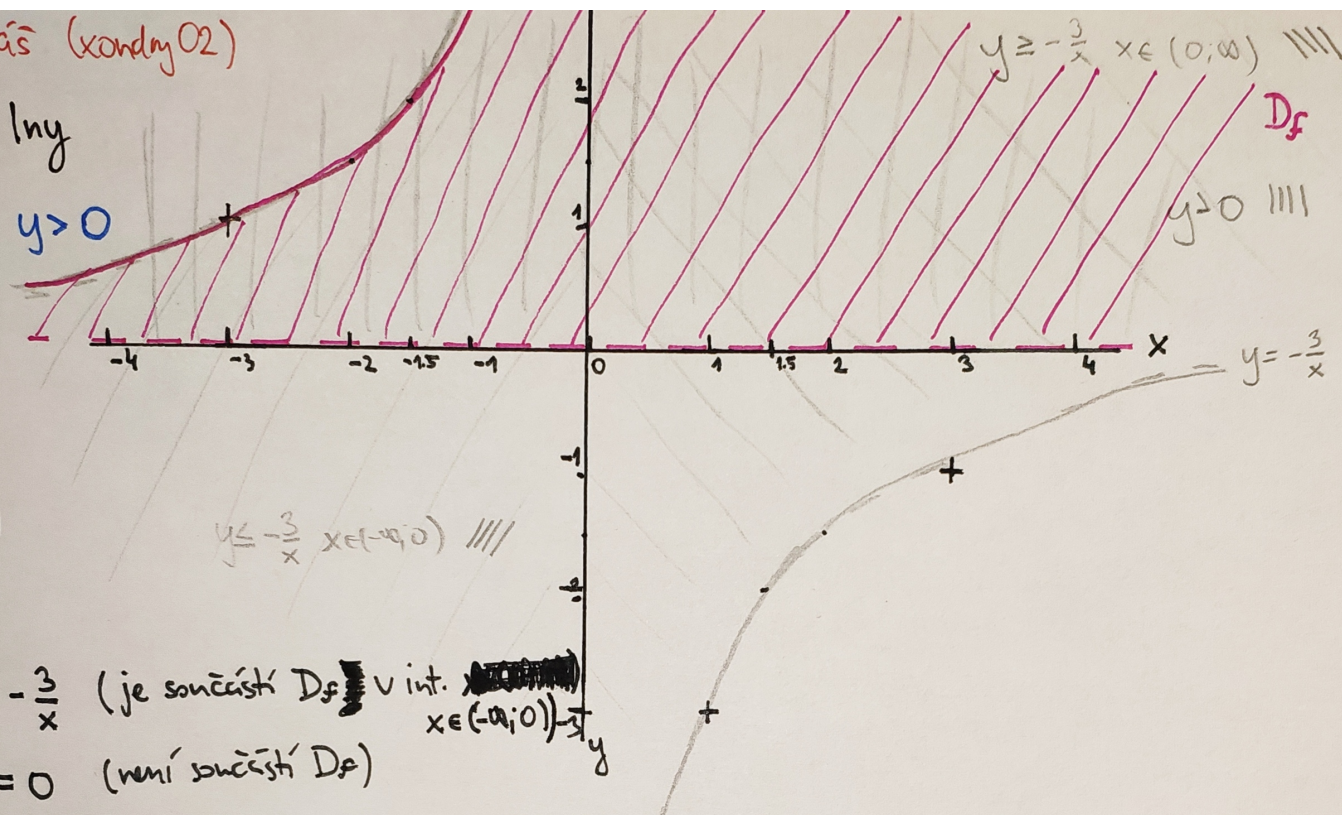 áš (xondry02)
y ≥ -3/x x∈(0;∞) ||||
lny
Df
y>0
y>0 ||||
2
1
-4 -3 -2 -1.5 -1 0 1 1.5 2 3 4 x
y = -3/x
-1
y ≤ -3/x x∈(-∞;0) ////
-2
-3/x (je součástí Df v int.
x∈(-∞;0)) -3
y
= 0 (není součástí Df)